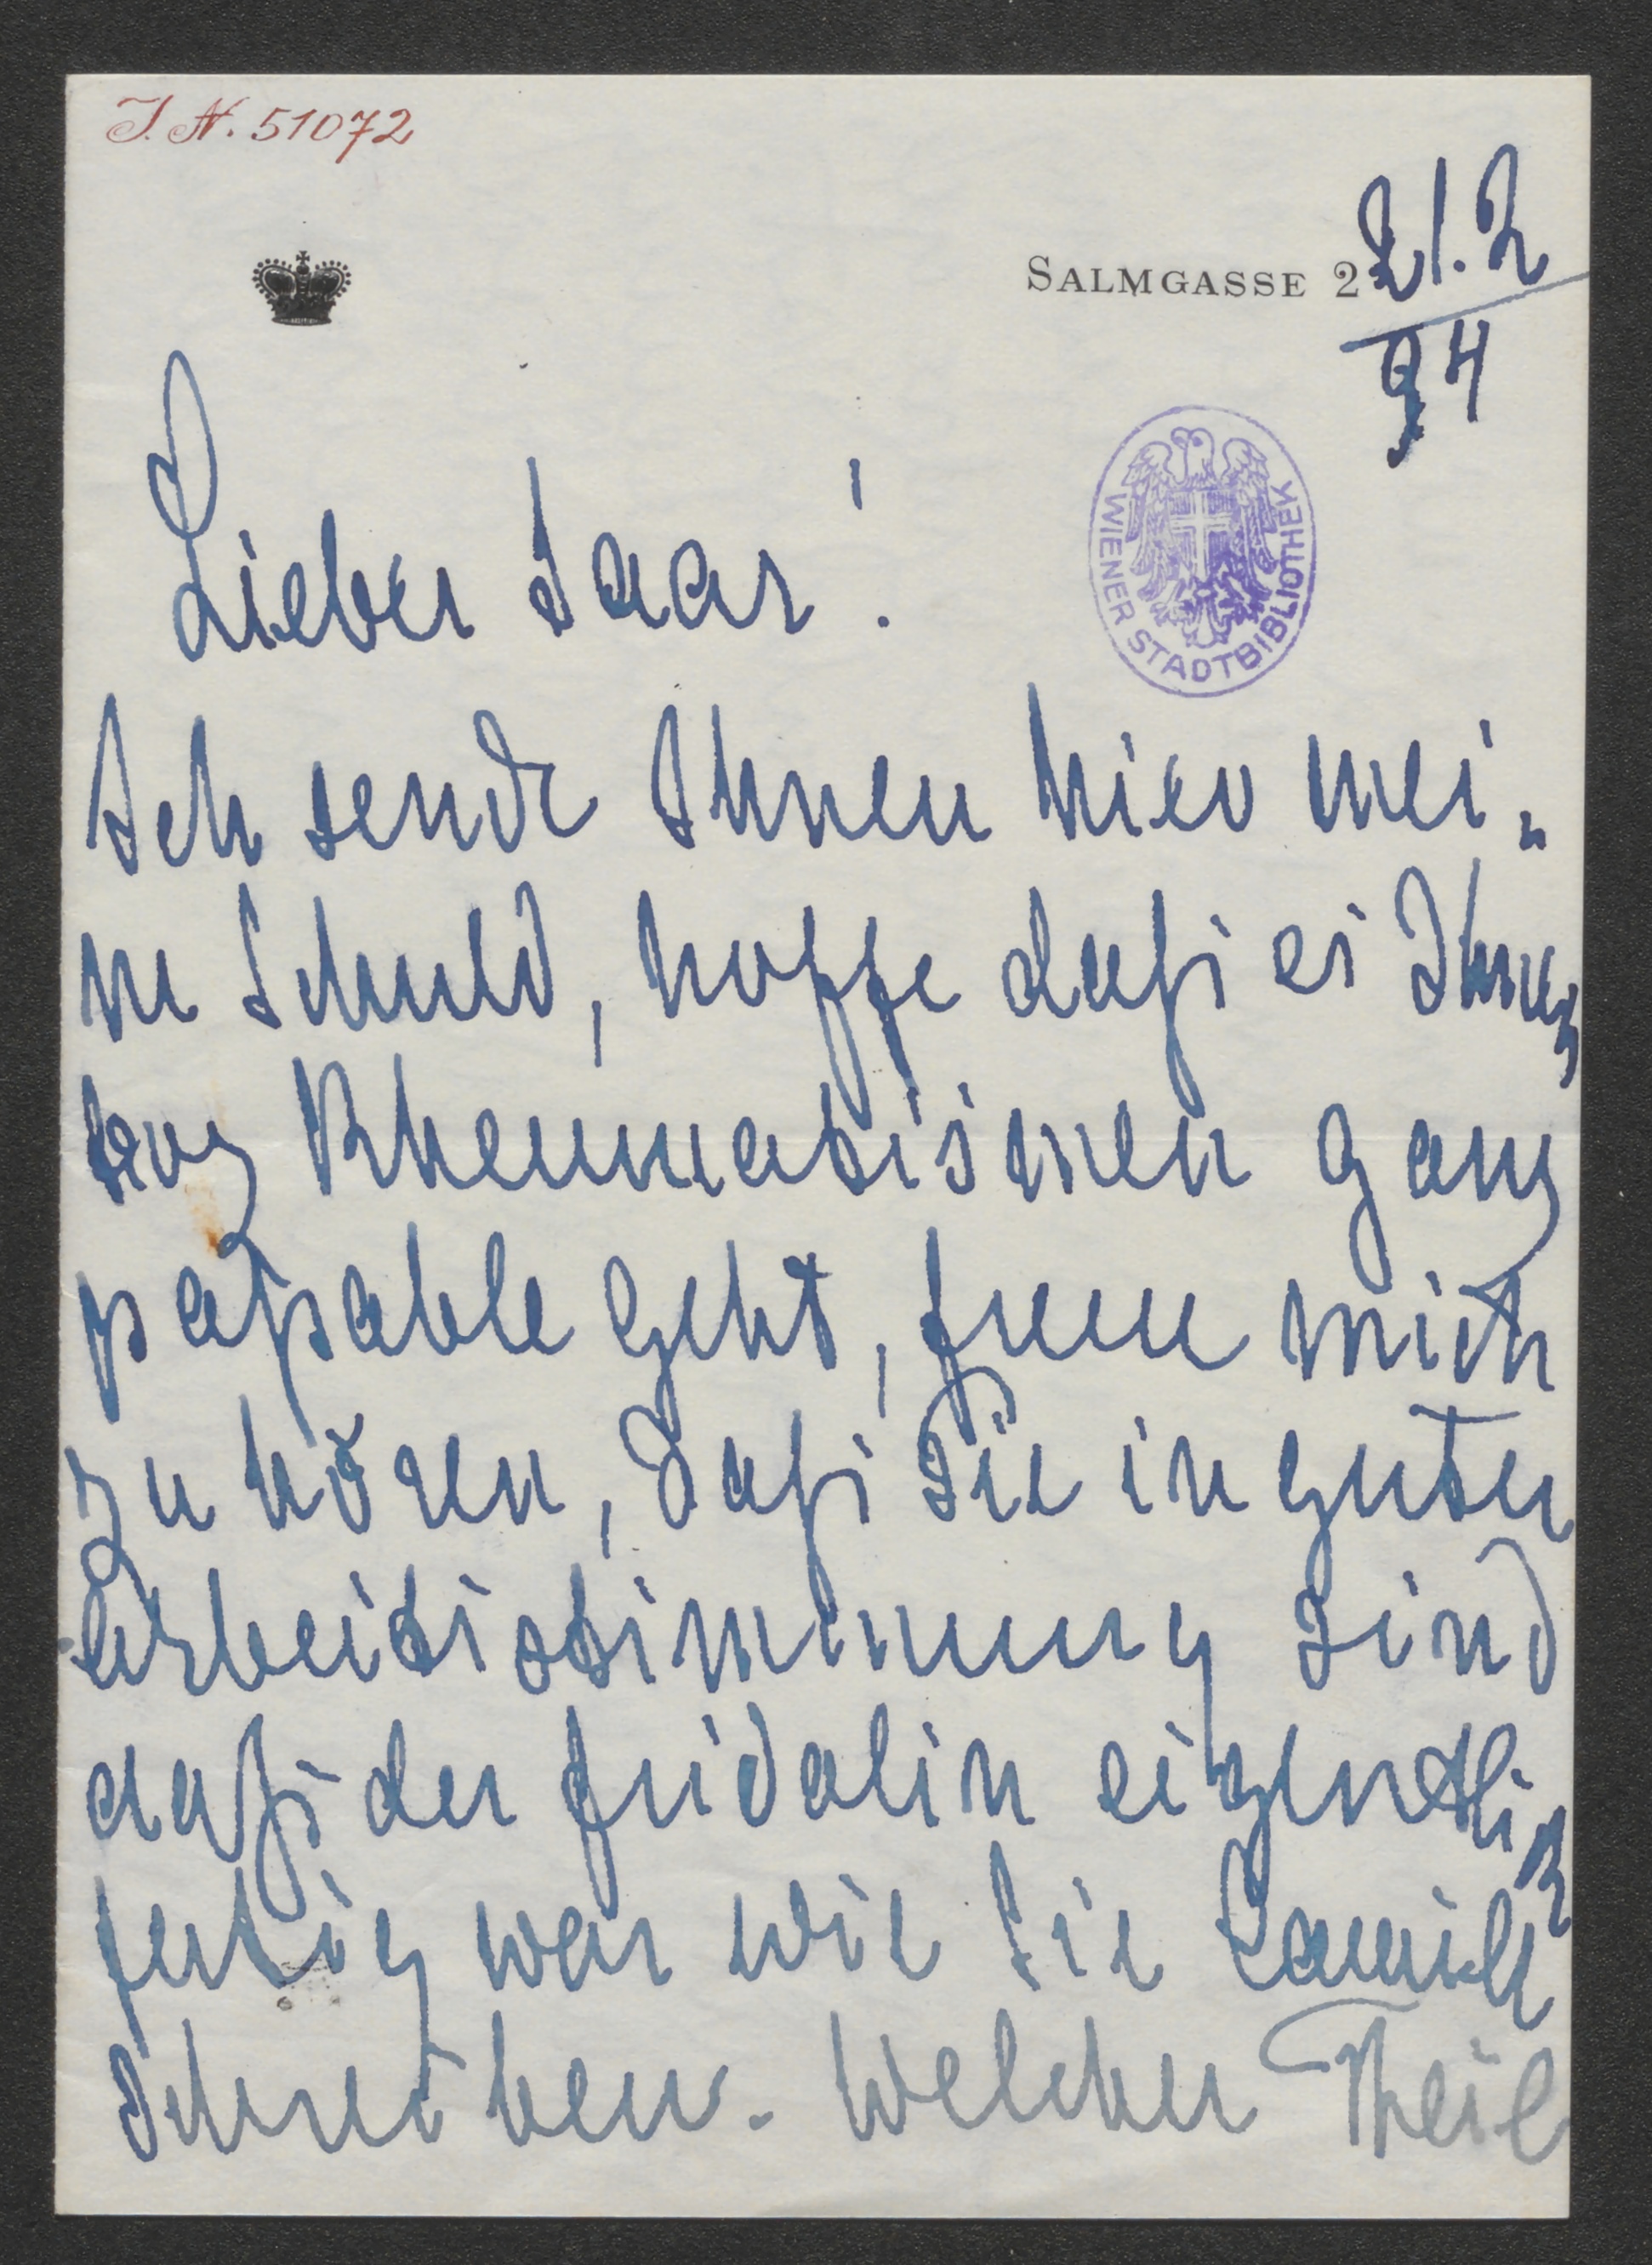 I. N. 51072
SALMGASSE 2
21.2
94
WIENER STADTBIBLIOTHEK
Lieber Saar!
Ich sende Ihnen hier mei„
ne Schuld, hoffe daß es Ihnen
troz Rheumatismen ganz
paßable geht, freue mich
zu hören, daß Sie in guter
Arbeitsstimmung sind
daß der Fridolin eigentlich
fertig war wie Sie Camilla
schrieben. Welcher Theil